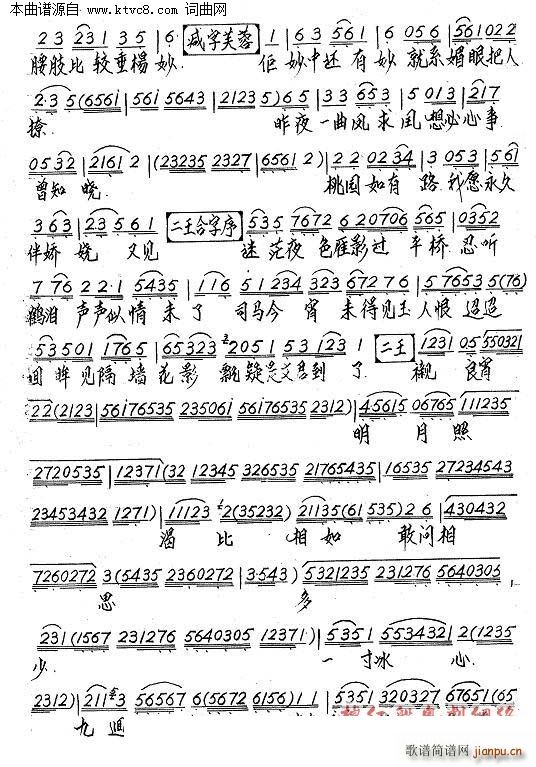 本曲谱源自 www.ktvc8.com 词曲网
2 3 2 3 1 3 5 | 6. 减字芙蓉 1 | 6 3 5 6 1 | 6 0 5 6 | 5 6 1 0 2 2
腰肢比较垂杨妙. 但妙中还有妙 就系媚眼把人
2·3 5 (6561 | 561 5643 | 2123 5) 6 5 | 3 3 6 5 3 | 5 0 1 3 | 2 1 7
撩. 昨夜一曲凤求凰 想必心事
0 5 3 2 | 2 1 6 1 2 | (23235 2327 | 6561 2) | 2 2 0 2 3 4 | 3 0 5 3 | 5 6 1
曾知晓. 桃园如有路 我愿永久
3 6 3 | 2 3 5 6 1 二王合字序 5 3 5 | 7 6 7 2 6 2 0 7 0 6 | 5 6 5 | 0 3 5 2
伴娇娆 又见 迷花夜色 雁影过平桥 忍听
7 7 6 2 2 1 | 5 4 3 5 | 1 1 6 5 1 2 3 4 3 2 3 6 7 2 7 6 | 5 7 6 5 3 5 (76)
鹤泪声声似情未了 司马今宵未得见玉人恨迢迢
5 3 5 0 1 | 1 7 6 5 | 6 5 3 2 3 2 0 5 1 5 3 1 2 3 1 二王 1 2 3 1 0 5 5 5 0 3 2 1
回眸见隔墙花影飘 疑是文君到了 衬良宵
2 2 (2123 | 56176535 235061 56176535 2312) | 4 5 6 1 5 0 6 7 6 5 1 1 1 2 3 5
明月照
2720535 | 12371 (32 12345 326535 21765435 | 16535 27234543
23453432 1271) | 1 1 1 2 3 2 (35232) 2 1 1 3 5 (61 535) 2 6 | 4 3 0 4 3 2
渴比相如 敢问相
7260272 3 (5435 2360272 | 3·543) | 5321235 231276 5640305
思多
231 (1567 231276 5640305 12371) | 5 3 5 1 5 5 3 4 3 2 1 2 (1235
少. 一寸冰心
2312) | 2 1 1 3 5 6 5 6 7 6 (5672 6156) | 1 1 | 5 3 5 1 3 2 0 3 2 7 6 7 6 5 1 (65
九迴
歌谱简谱网
jianpu.cn